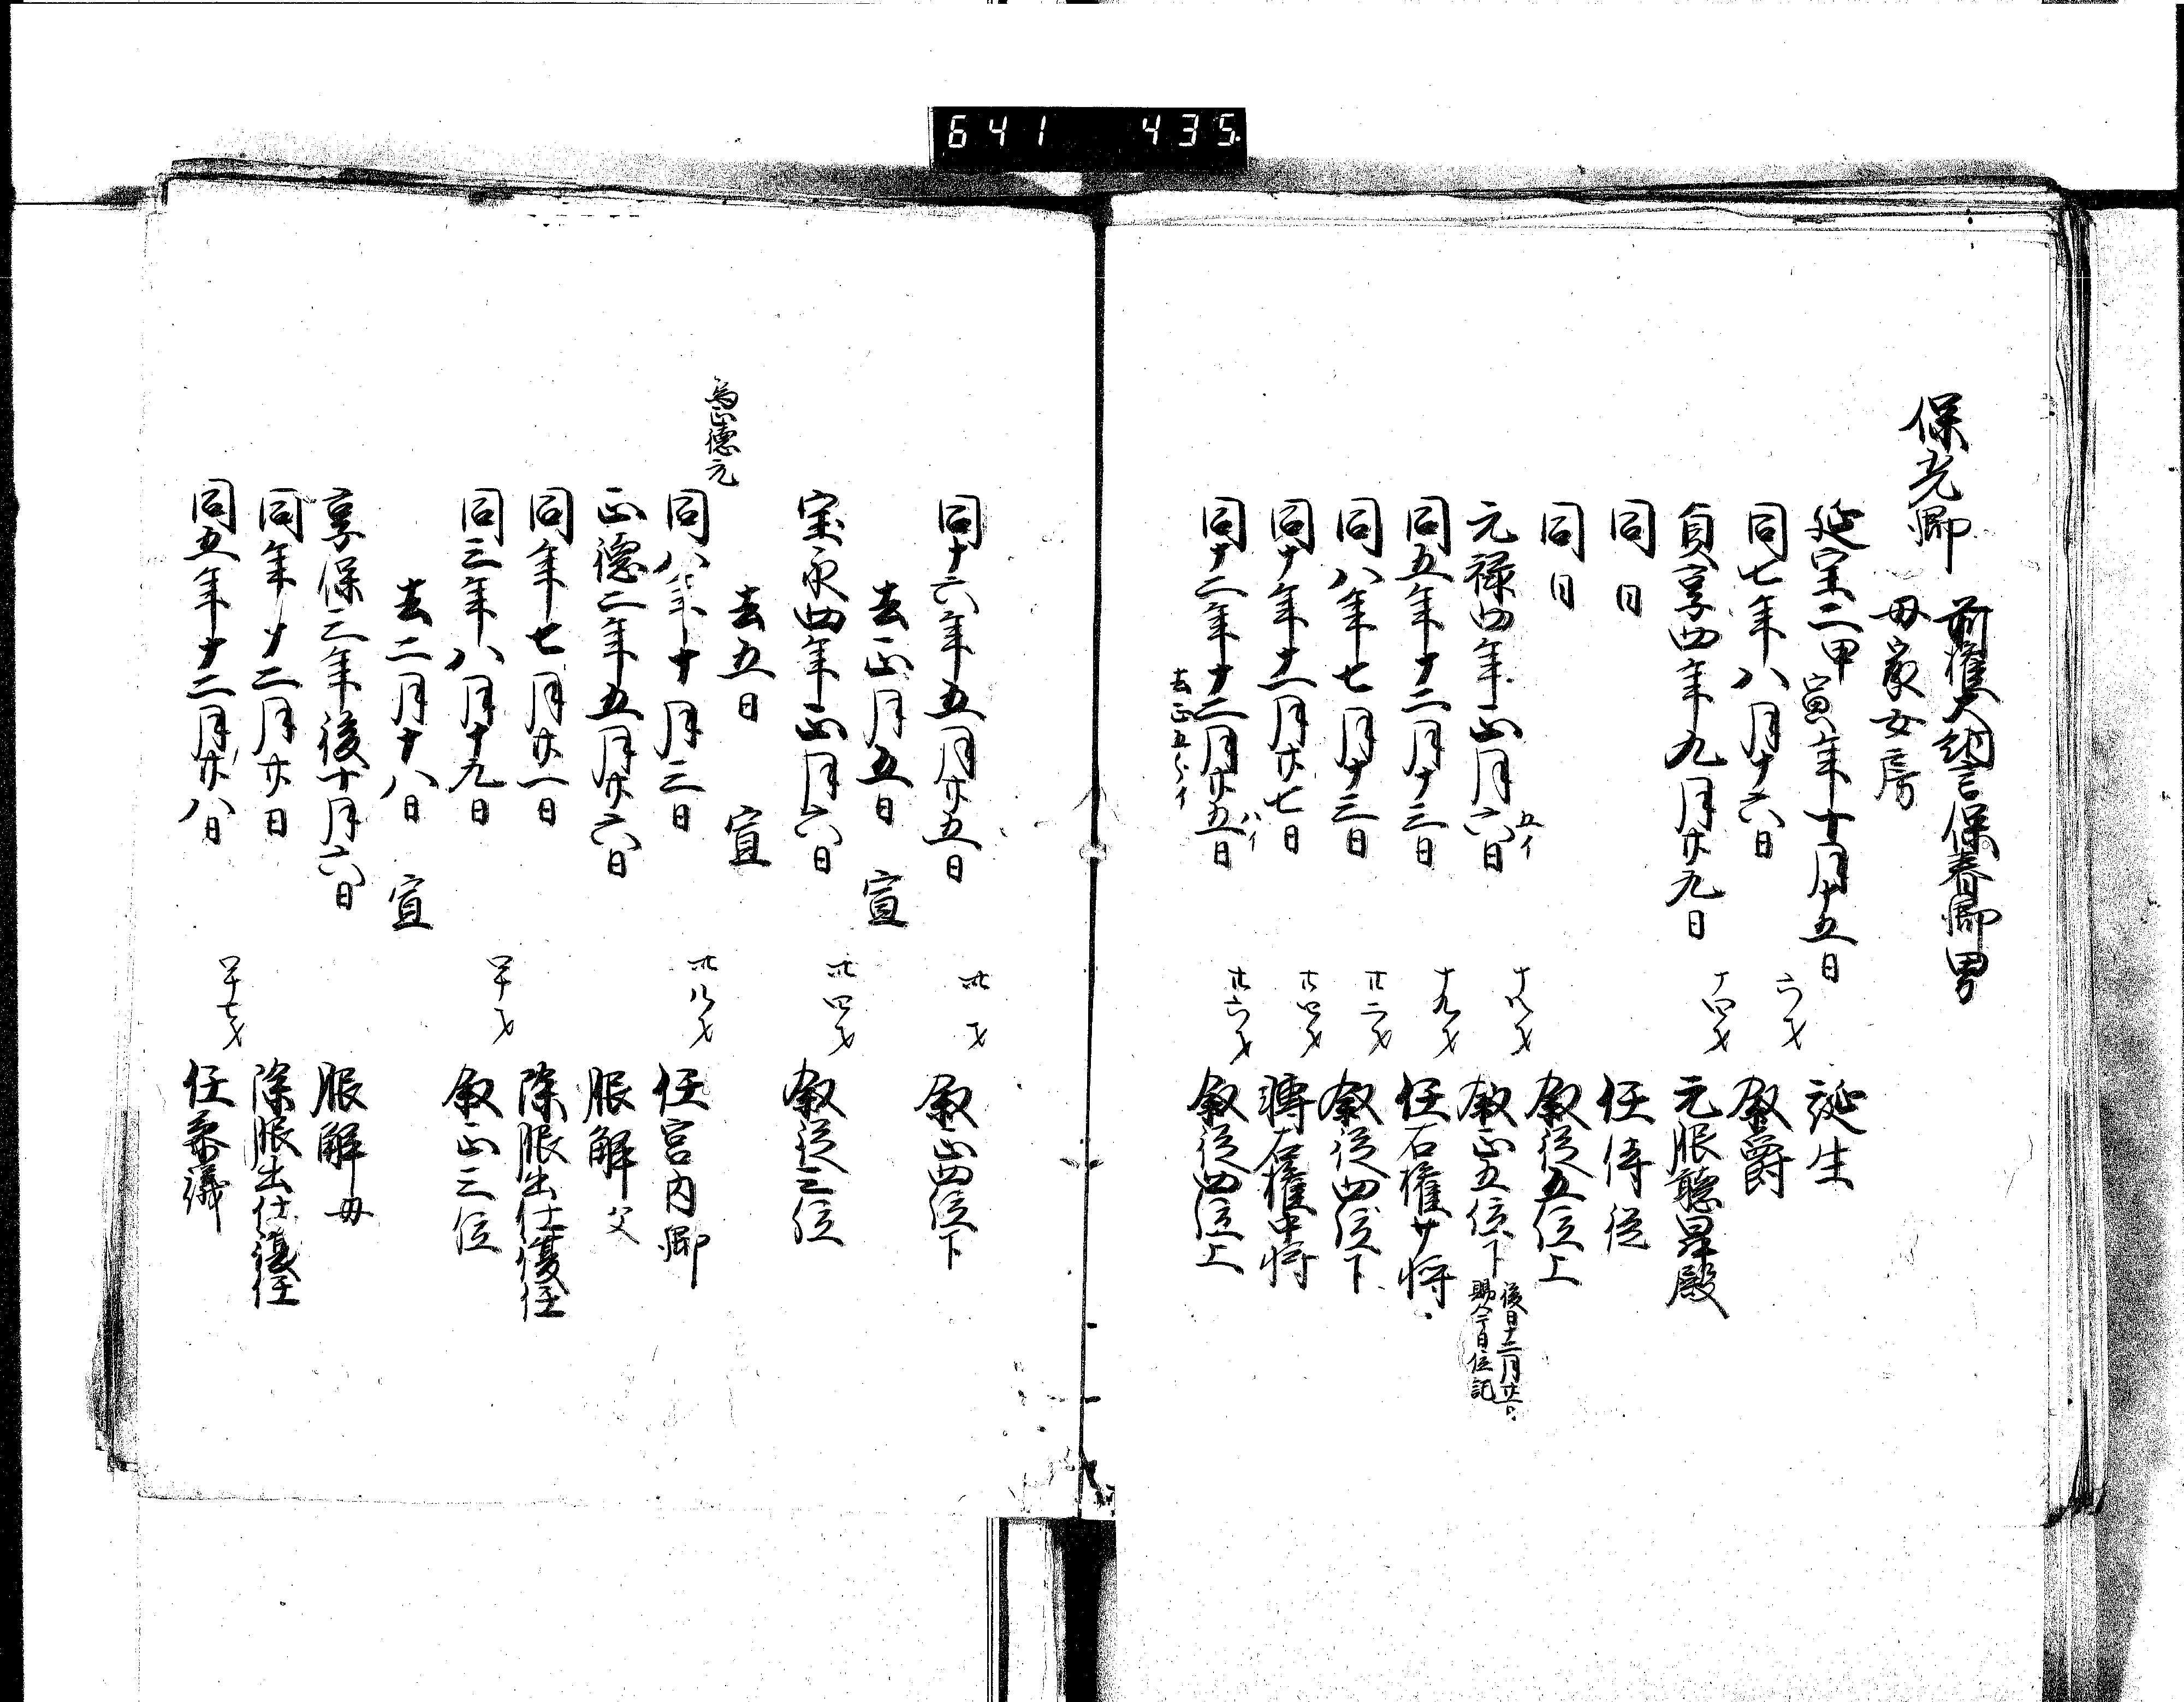 641 435
保光卿 前權大納言保春卿男
母家女房
延宝二甲寅年十一月十五日 誕生
同七年八月十六日 六才 叙爵
貞享四年九月廿九日 十四才 元服聴昇殿
同日 任侍従
同日 叙従五位上
元禄四年正月六日 五イ 十八才 叙正五位下 後日十二月廿五日 賜今日位記
同五年十二月十三日 十九才 任右權少将
同八年七月十三日 廿二才 叙従四位下
同十年十二月廿七日 廿四才 轉右權中将
同十二年十二月廿五日 八イ 廿六才 叙従四位上
去正五イ
同十六年五月廿五日 卅才 叙正四位下
去正月五日 宣
宝永四年正月六日 卅四才 叙従三位
去五日 宣
為正徳元
同八年十月三日 卅八才 任宮内卿
正徳二年五月廿六日 服解父
同年七月廿一日 除服出仕復任
同三年八月十九日 四十才 叙正三位
去二月十八日 宣
享保二年後十月六日 服解母
同年十二月廿日 除服出仕復任
同五年十二月廿八日 四十七才 任参議